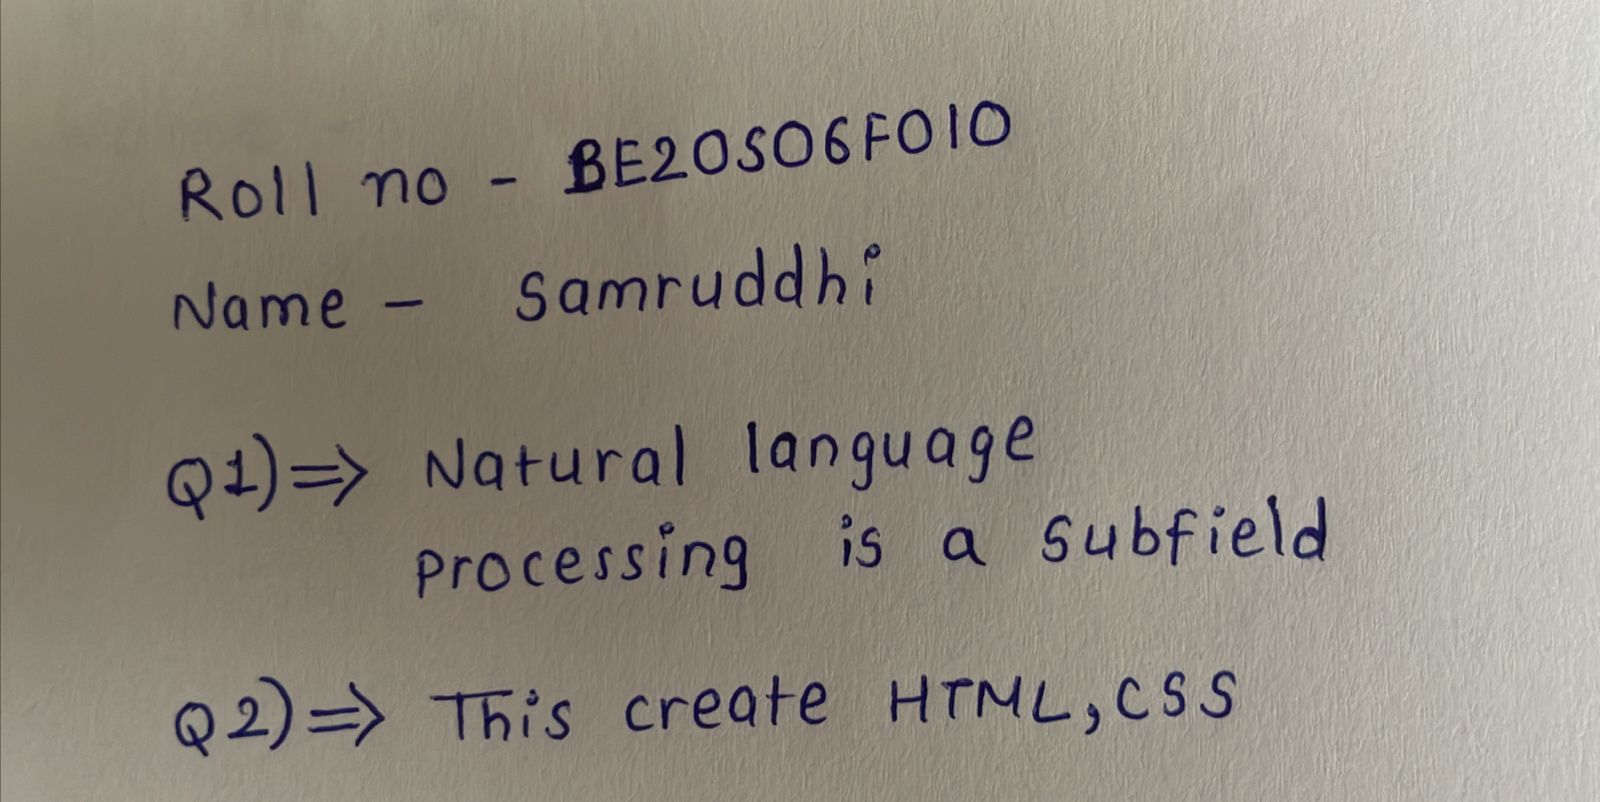 Roll no - BE20S06F010
Name - Samruddhi
Q1)⇒ Natural language
processing is a subfield
Q2)⇒ This create HTML, CSS